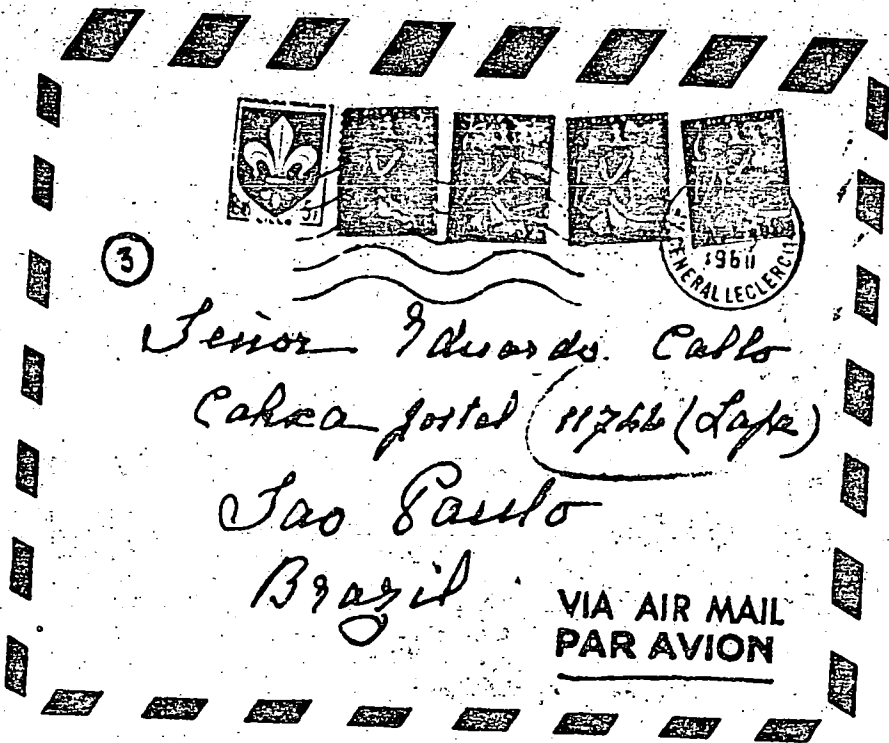 3
1961
GENERAL LECLERC
Señor Eduardo. Callo
Caixa postal 11744 (Lapa)
Sao Paulo
Brazil
VIA AIR MAIL
PAR AVION